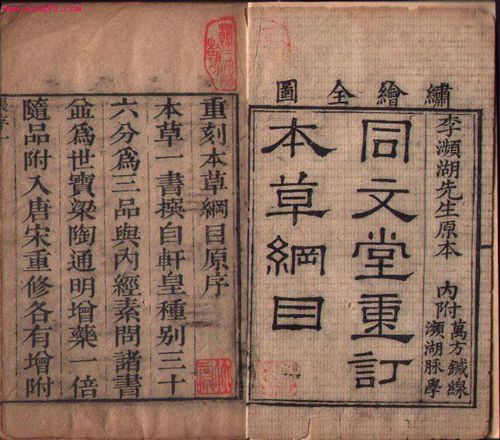 繡繪全圖
李瀕湖先生原本 內附
萬方鍼線
瀕湖脉學
同文堂重訂
本草綱目
重刻本草綱目原序
本草一書撰自軒皇種别三十
六分爲三品與內經素問諸書
並爲世寶梁陶通明增藥一倍
隨品附入唐宋重修各有增附